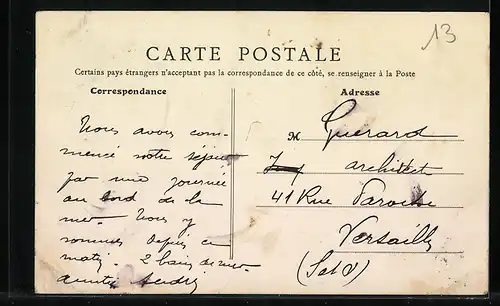 13
CARTE POSTALE
Certains pays étrangers n'acceptant pas la correspondance de ce côté, se renseigner à la Poste
Correspondance
Nous avons com-
mencé notre séjour
par une journée
au bord de la
mer. Nous y
sommes depuis ce
matin. 2 bains de mer
Adresse
M Guérard
architecte
41 Rue Paroisse
Versailles
(S et O)